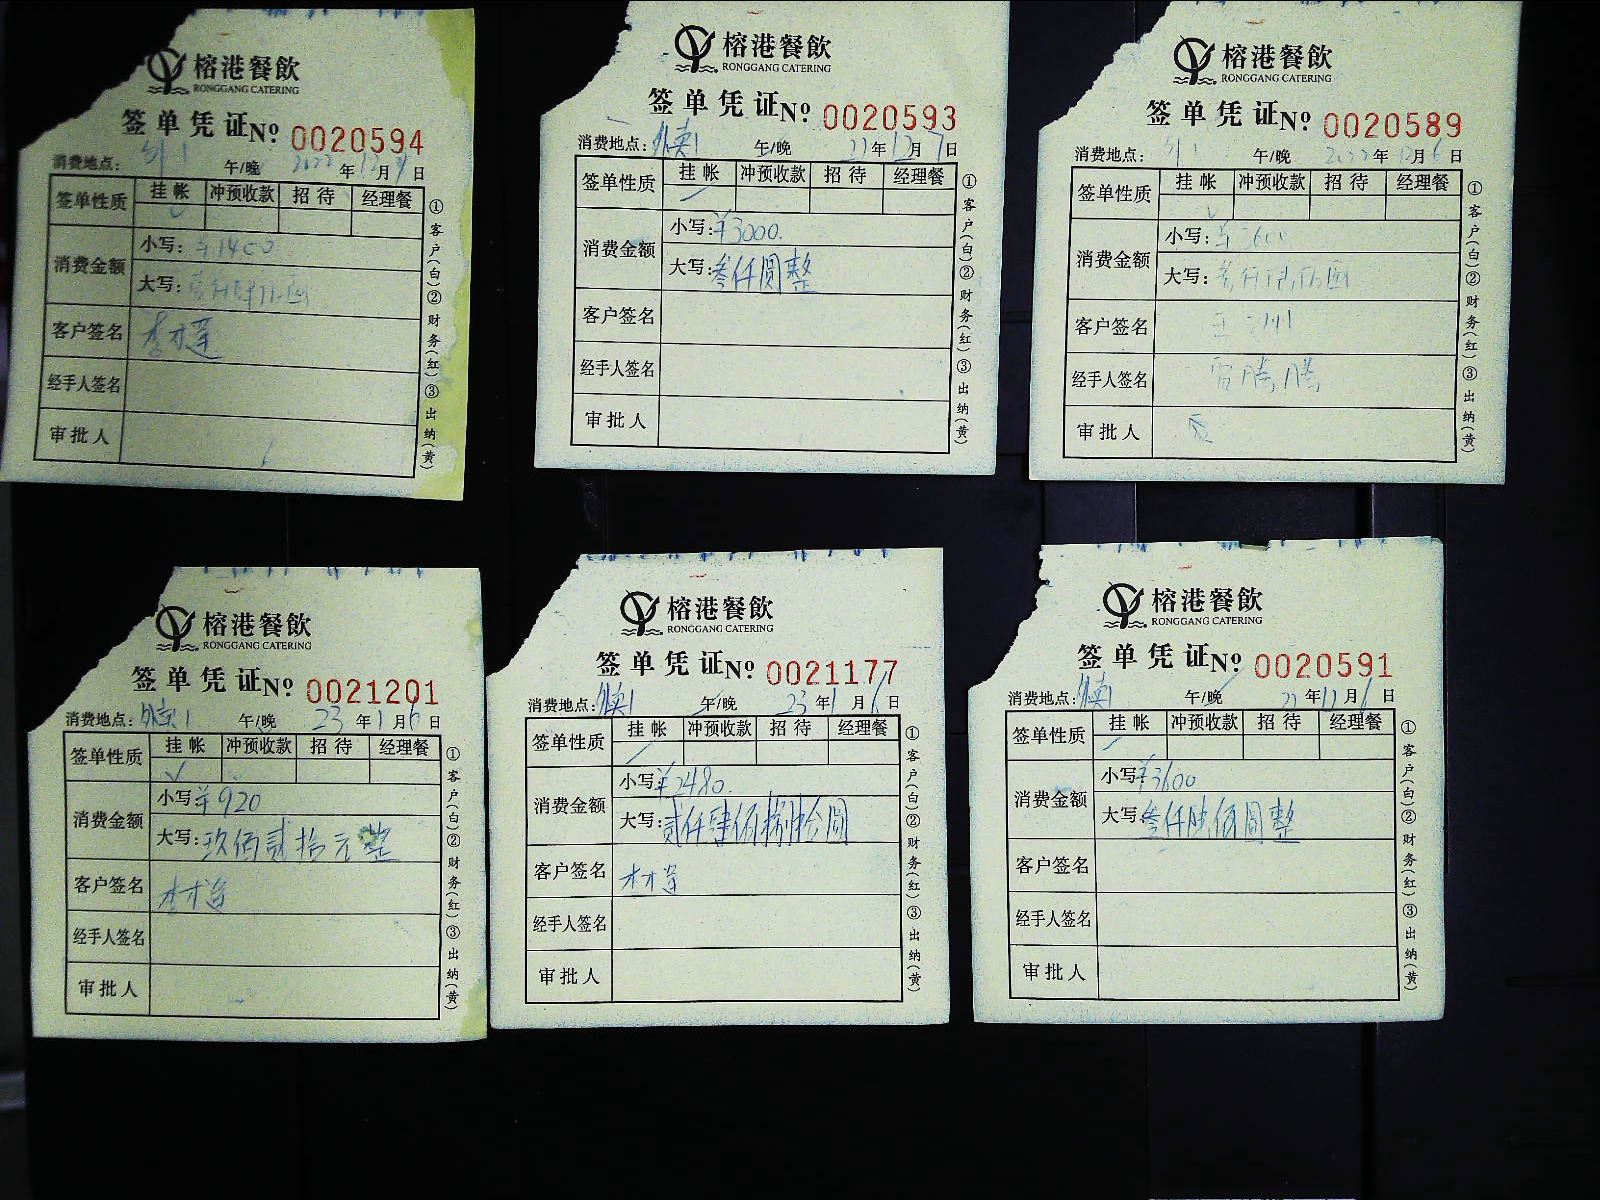 榕港餐飲
RONGGANG CATERING
签单凭证№ 0020594
消费地点: 外1 午/晚 2022年12月 日
签单性质 挂帐 冲预收款 招待 经理餐
消费金额
小写: ¥1400
大写:
客户签名 李才莲
经手人签名
审批人
①客户(白)②财务(红)③出纳(黄)
榕港餐飲
RONGGANG CATERING
签单凭证№ 0020593
消费地点: 外卖1 午/晚 22年12月7日
签单性质 挂帐 冲预收款 招待 经理餐
消费金额
小写: ¥3000.
大写: 叁仟圆整
客户签名
经手人签名
审批人
①客户(白)②财务(红)③出纳(黄)
榕港餐飲
RONGGANG CATERING
签单凭证№ 0020589
消费地点: 外1 午/晚 2022年12月6日
签单性质 挂帐 冲预收款 招待 经理餐
消费金额
小写: ¥3600
大写: 叁仟陆佰圆
客户签名
经手人签名 雷腾腾
审批人
①客户(白)②财务(红)③出纳(黄)
榕港餐飲
RONGGANG CATERING
签单凭证№ 0021201
消费地点: 外卖1 午/晚 23年1月6日
签单性质 挂帐 冲预收款 招待 经理餐
消费金额
小写: ¥920
大写: 玖佰贰拾元整
客户签名 李才莲
经手人签名
审批人
①客户(白)②财务(红)③出纳(黄)
榕港餐飲
RONGGANG CATERING
签单凭证№ 0021177
消费地点: 外卖1 午/晚 23年1月6日
签单性质 挂帐 冲预收款 招待 经理餐
消费金额
小写: ¥2480.
大写: 贰仟肆佰捌拾圆
客户签名
经手人签名
审批人
①客户(白)②财务(红)③出纳(黄)
榕港餐飲
RONGGANG CATERING
签单凭证№ 0020591
消费地点: 外卖1 午/晚 22年12月6日
签单性质 挂帐 冲预收款 招待 经理餐
消费金额
小写: ¥3600
大写: 叁仟陆佰圆整
客户签名
经手人签名
审批人
①客户(白)②财务(红)③出纳(黄)